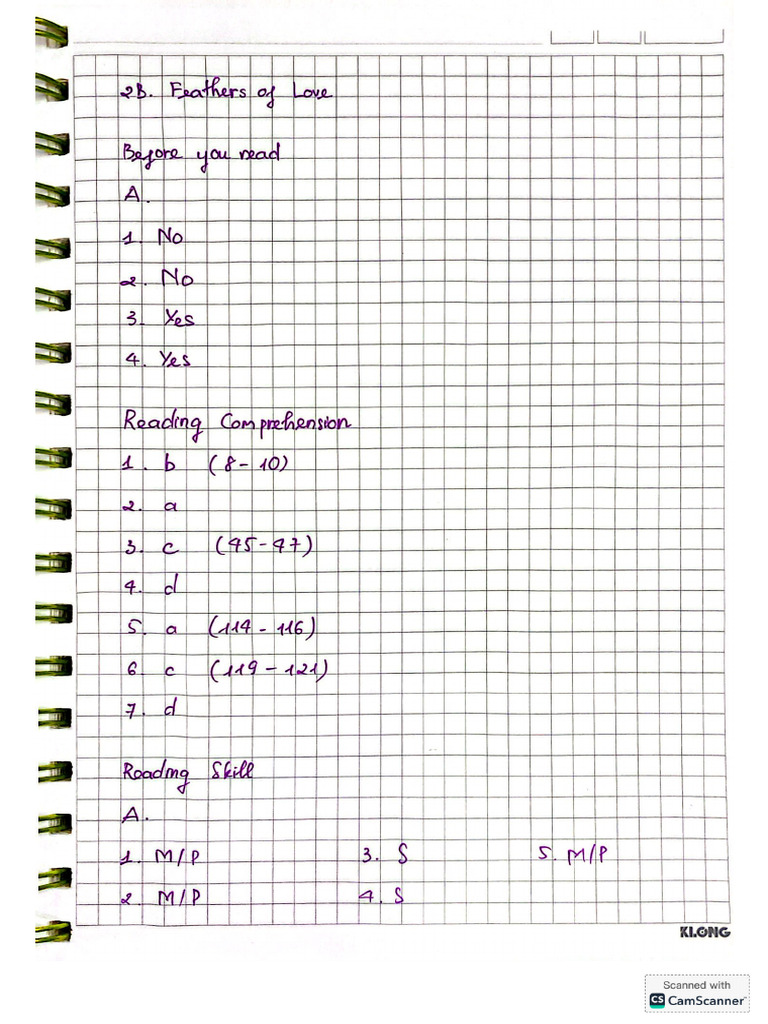 2B. Feathers of Love
Before you read
A.
1. No
2. No
3. Yes
4. Yes
Reading Comprehension
1. b (8-10)
2. a
3. c (45-47)
4. d
5. a (114-116)
6. c (119-121)
7. d
Reading Skill
A.
1. M/P 3. S 5. M/P
2. M/P 4. S
KLONG
Scanned with
CS CamScanner